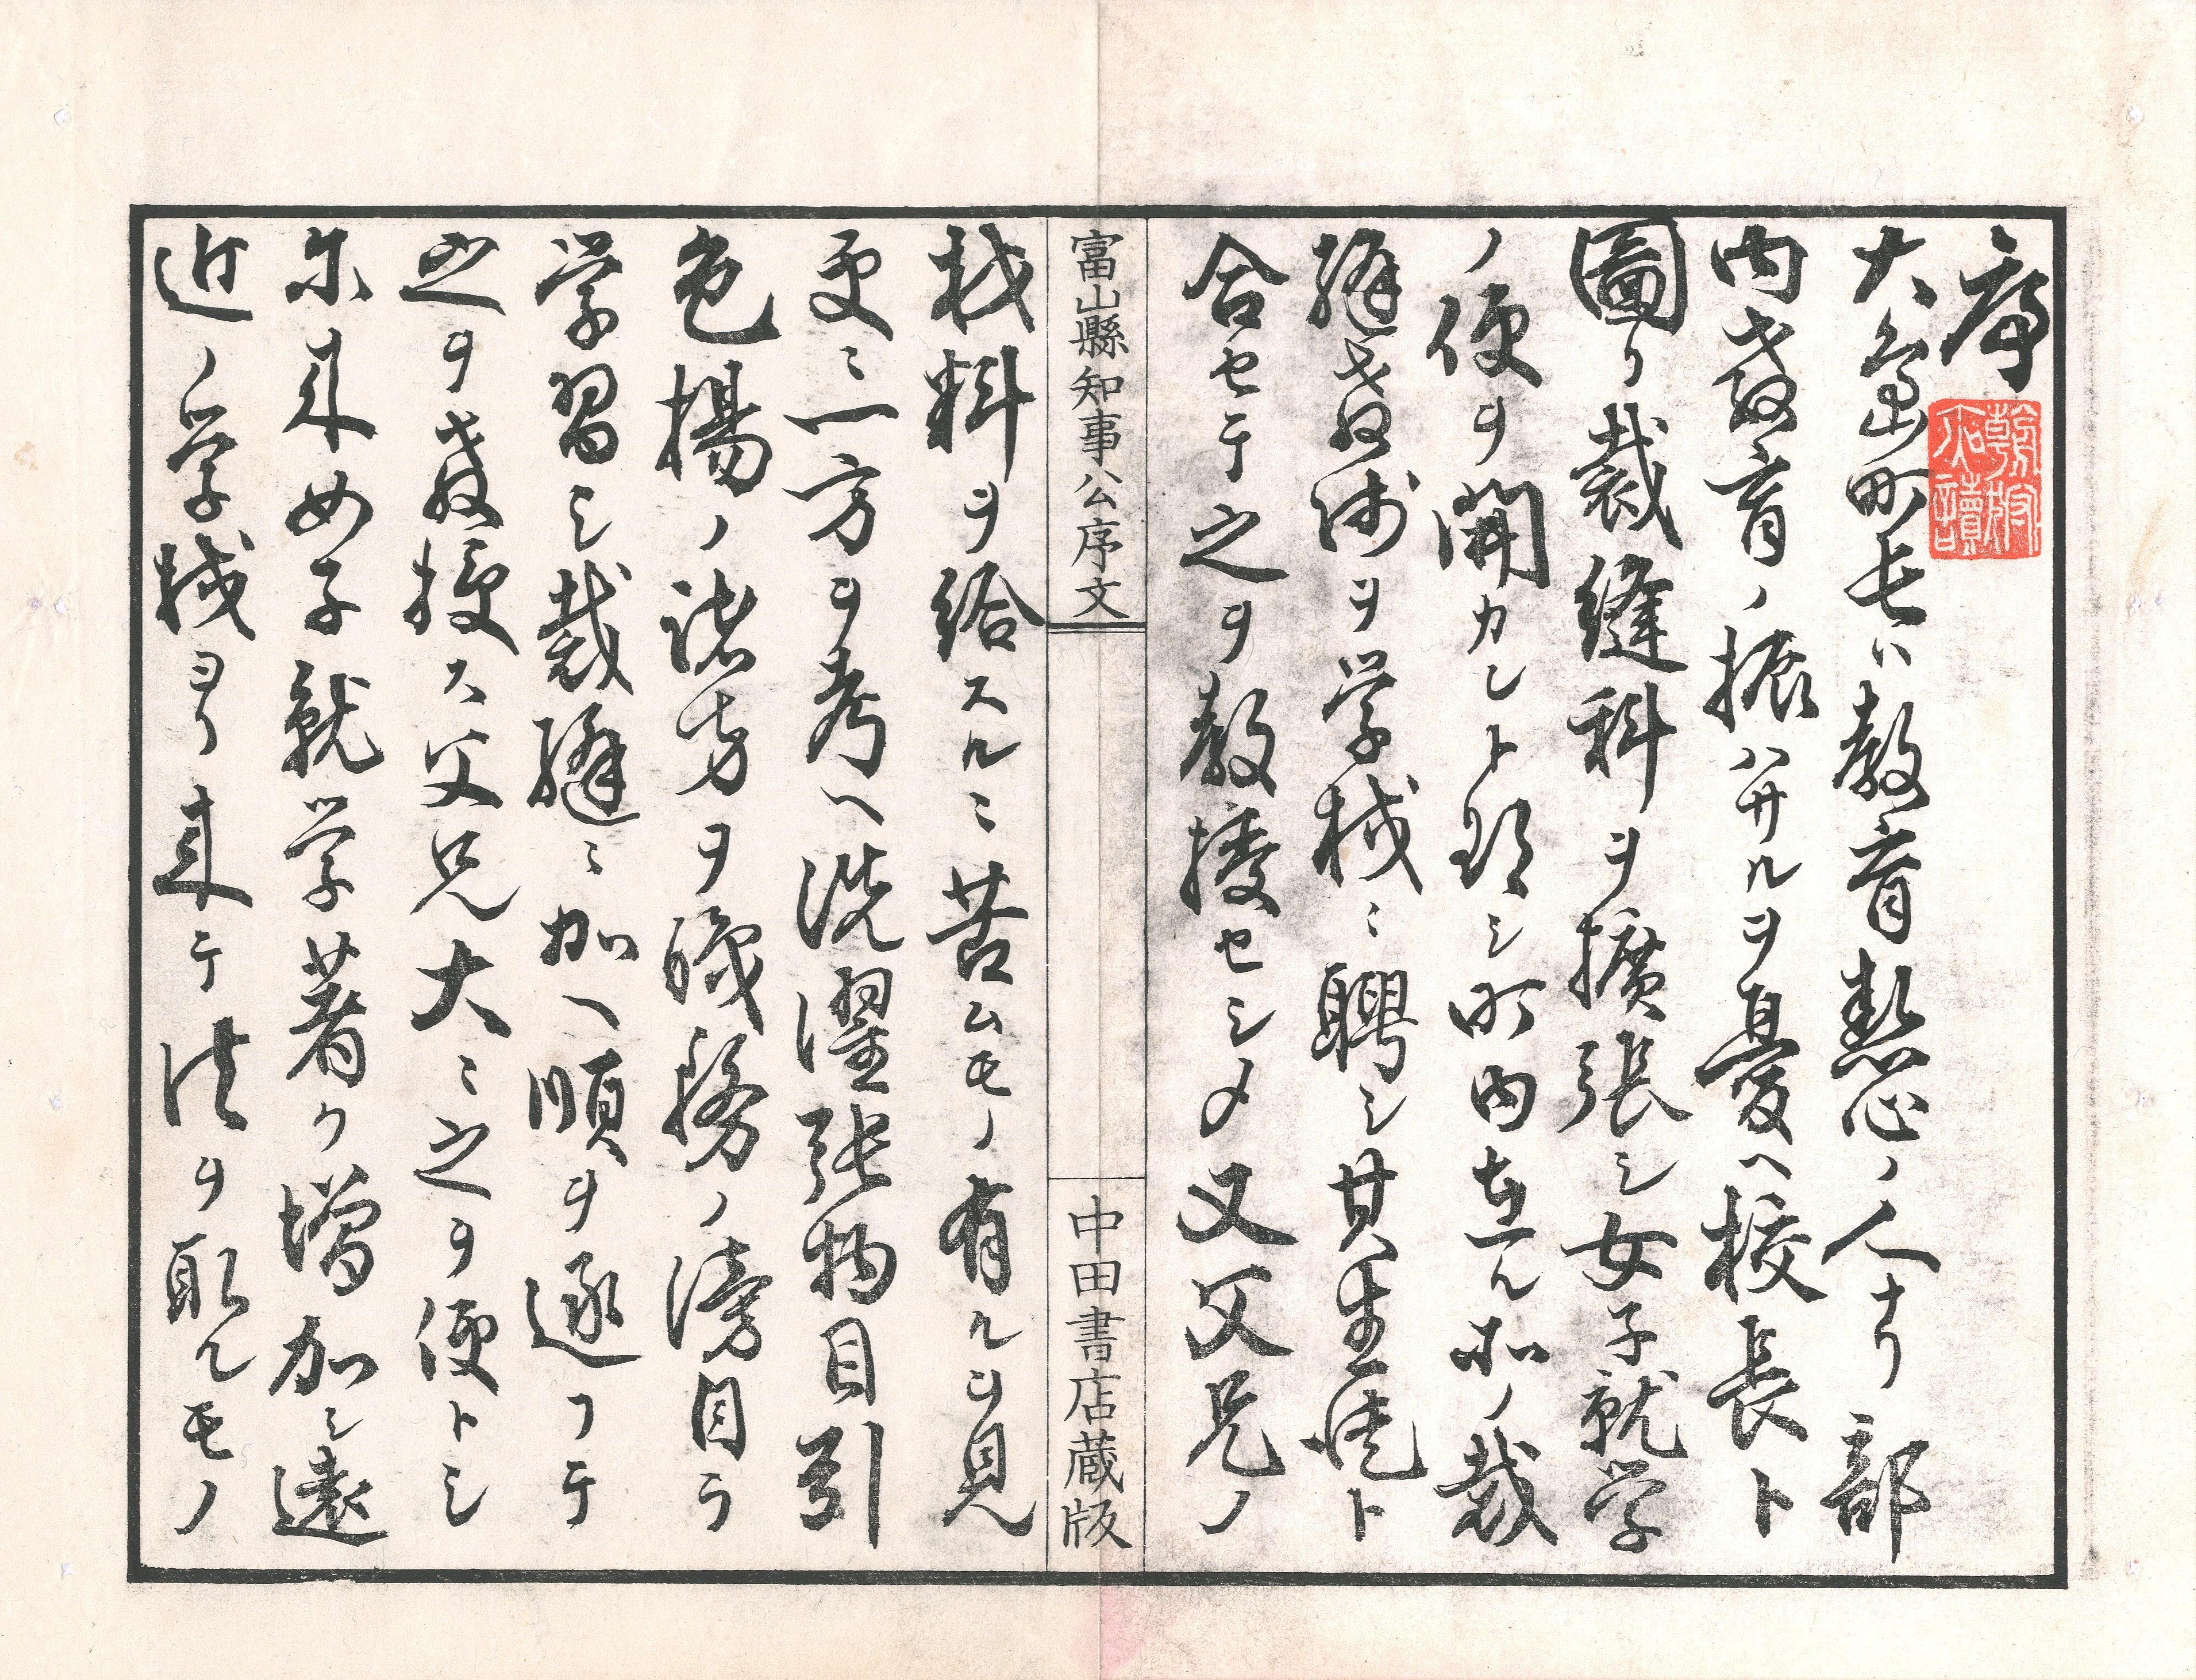 序
大島町長ハ教育熱心ノ人ナリ部
内教育ノ振ハサルヲ憂ヘ校長ト
圖リ裁縫科ヲ擴張シ女子就学
ノ便ヲ開カント期シ町内在ル所ノ裁
縫教師ヲ学校ニ聘シ其生徒ト
合セテ之ヲ教授セシメ又父兄ノ
富山縣知事公序文
中田書店蔵版
材料ヲ給スルニ苦ムモノ有ルヲ見
更ニ一方ヲ考ヘ洗濯張物目引
色揚ノ諸方ヲ職務ノ傍自ラ
学習シ裁縫ニ加ヘ順ヲ逐フテ
之ヲ教授ス父兄大ニ之ヲ便トシ
尓来女子就学著ク増加シ遠
近ノ学校ヨリ来テ法ヲ取ルモノ